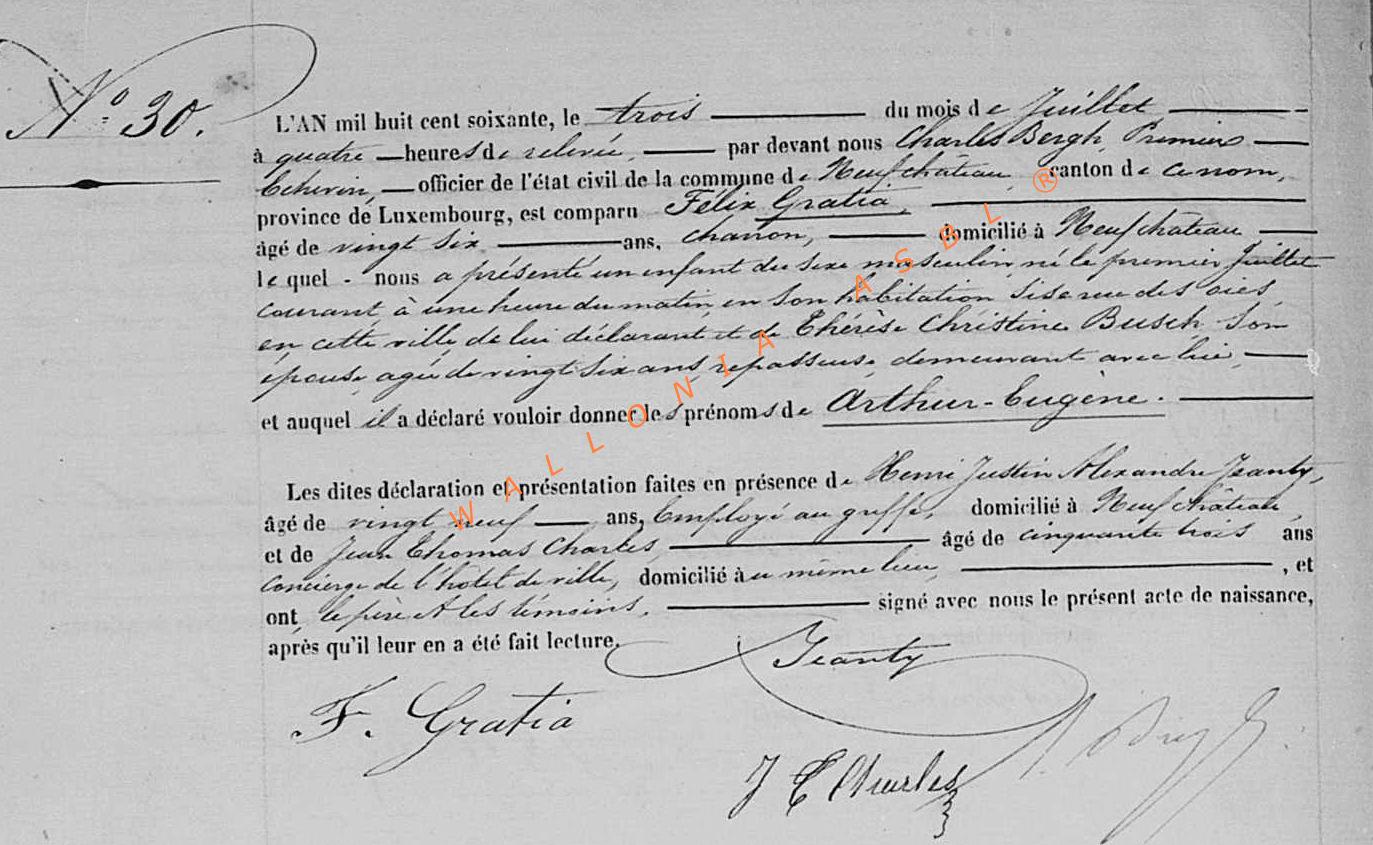 N° 30.
L'AN mil huit cent soixante, le trois du mois de Juillet
à quatre heures de relevée, par devant nous Charles Bergh, Premier
Echevin, officier de l'état civil de la commune de Neufchâteau, canton de ce nom,
province de Luxembourg, est comparu Félix Gratia,
âgé de vingt six ans, charron, domicilié à Neufchateau
lequel nous a présenté un enfant du sexe masculin, né le premier Juillet
courant à une heure du matin, en son habitation sise rue des oies,
en cette ville, de lui déclarant et de Thérèse Christine Busch son
épouse, agée de vingt six ans, repasseuse, demeurant avec lui,
et auquel il a déclaré vouloir donner les prénoms de Arthur-Eugène.
Les dites déclaration et présentation faites en présence de Henri Justin Alexandre Jeanty,
âgé de vingt neuf ans, Employé au greffe, domicilié à Neufchâteau,
et de Jean Thomas Charles, âgé de cinquante trois ans
concierge de l'hôtel de ville, domicilié au même lieu, , et
ont, le père et les témoins, signé avec nous le présent acte de naissance,
après qu'il leur en a été fait lecture.
Jeanty
F. Gratia
J T Charles
WALLONIA ASBL ®